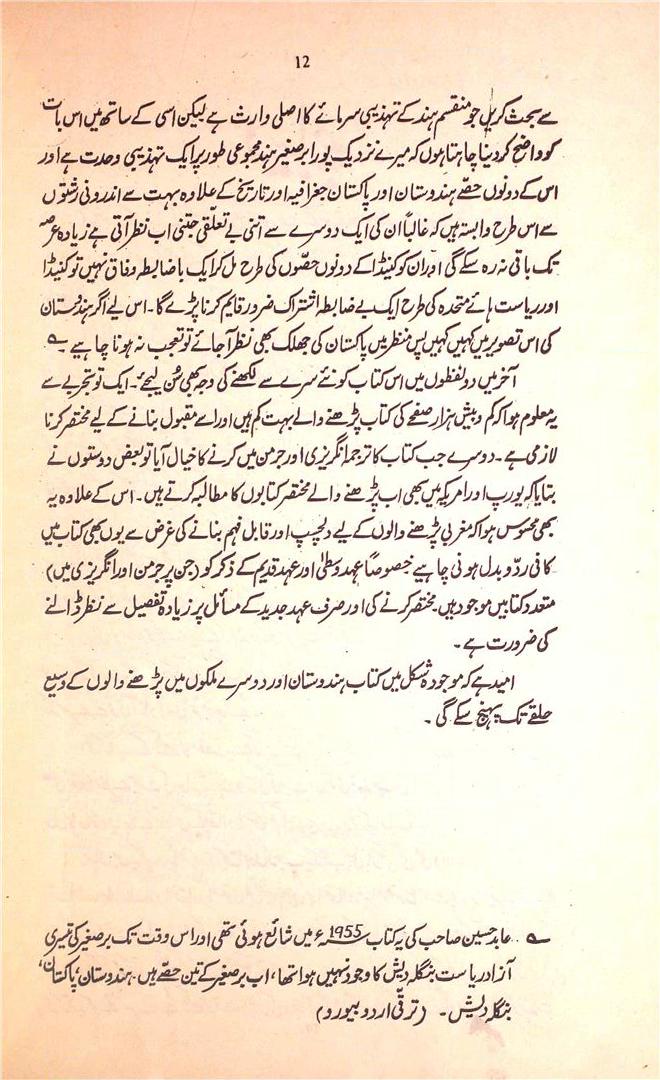 12
سے بحث کریں جو منقسم ہند کے تہذیبی سرمائے کا اصلی وارث ہے لیکن اسی کے ساتھ میں اس بات
کو واضح کر دینا چاہتا ہوں کہ میرے نزدیک پورا برصغیر ہند مجموعی طور پر ایک تہذیبی وحدت ہے اور
اس کے دونوں حصّے ہندوستان اور پاکستان جغرافیہ اور تاریخ کے علاوہ بہت سے اندرونی رشتوں
سے اس طرح وابستہ ہیں کہ غالباً ان کی ایک دوسرے سے اتنی بے تعلقی جتنی اب نظر آتی ہے زیادہ عرصہ
تک باقی نہ رہ سکے گی اور ان کو کنیڈا کے دونوں حصّوں کی طرح مل کر ایک باضابطہ وفاق نہیں تو کنیڈا
اور ریاست ہائے متحدہ کی طرح ایک بے ضابطہ اشتراک ضرور قایم کرنا پڑے گا۔ اس لیے اگر ہندوستان
کی اس تصویر میں کہیں کہیں پس منظر میں پاکستان کی جھلک بھی نظر آ جائے تو تعجب نہ ہونا چاہیے ؎
آخر میں دو لفظوں میں اس کتاب کو نئے سرے سے لکھنے کی وجہ بھی سُن لیجیے۔ ایک تو تجربے سے
یہ معلوم ہوا کہ کم و بیش ہزار صفحے کی کتاب پڑھنے والے بہت کم ہیں اور اسے مقبول بنانے کے لیے مختصر کرنا
لازمی ہے۔ دوسرے جب کتاب کا ترجمہ انگریزی اور جرمن میں کرنے کا خیال آیا تو بعض دوستوں نے
بتایا کہ یورپ اور امریکہ میں بھی اب پڑھنے والے مختصر کتابوں کا مطالبہ کرتے ہیں۔ اس کے علاوہ یہ
بھی محسوس ہوا کہ مغربی پڑھنے والوں کے لیے دلچسپ اور قابل فہم بنانے کی غرض سے یوں بھی کتاب میں
کافی ردّ و بدل ہونی چاہیے خصوصاً عہد وسطیٰ اور عہد قدیم کے ذکر کو (جن پر جرمن اور انگریزی میں)
متعدد کتابیں موجود ہیں۔ مختصر کرنے کی اور صرف عہد جدید کے مسائل پر زیادہ تفصیل سے نظر ڈالنے
کی ضرورت ہے۔
امید ہے کہ موجودہ شکل میں کتاب ہندوستان اور دوسرے ملکوں میں پڑھنے والوں کے وسیع
حلقے تک پہنچ سکے گی۔
؎ عابد حسین صاحب کی یہ کتاب 1955ء میں شائع ہوئی تھی اور اس وقت تک برصغیر کی تیسری
آزاد ریاست بنگلہ دیش کا وجود نہیں ہوا تھا، اب برصغیر کے تین حصّے ہیں۔ ہندوستان، پاکستان،
بنگلہ دیش۔ (ترقی اردو بیورو)